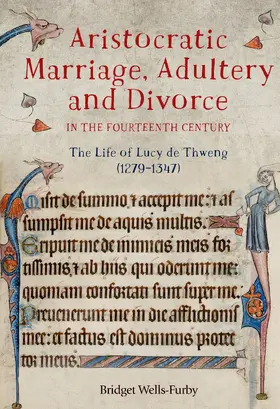 Aristocratic
Marriage, Adultery
and Divorce
IN THE FOURTEENTH CENTURY
The Life of Lucy de Thweng
(1279–1347)
Misit de summo, & accepit me: & as
sumpsit me de aquis multis.
Eripuit me de inimicis meis for
tissimis, & ab hiis qui oderunt me:
quoniam confortati sunt super me.
Prevenerunt me in die afflictionis
mee: et factus est dominus protec
tor meus.
Bridget Wells-Furby